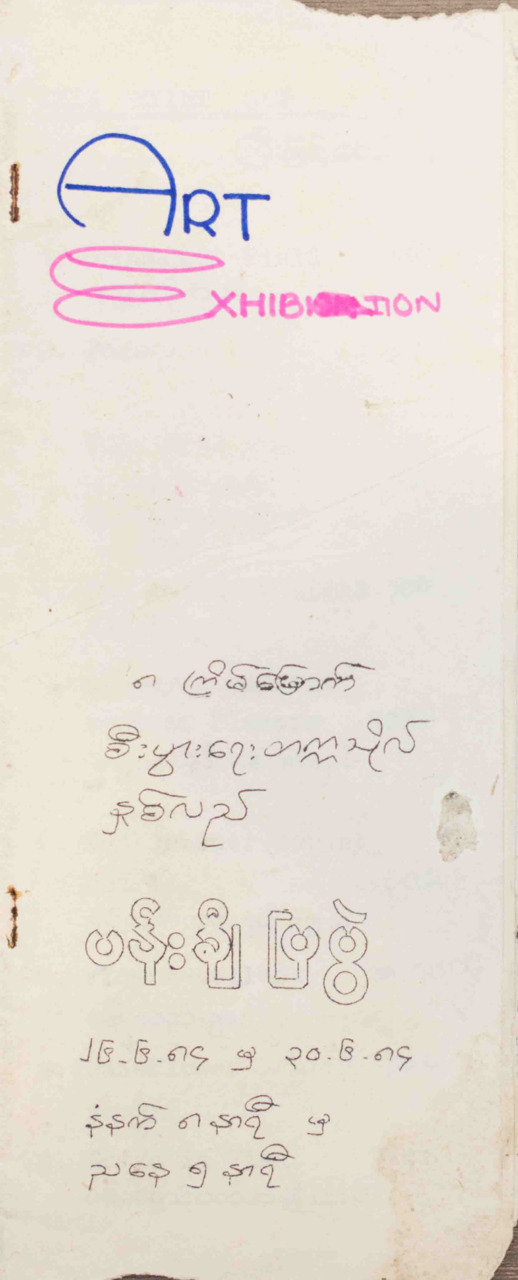 ART
EXHIBITION
၈ ကြိမ်မြောက်
စီးပွားရေးတက္ကသိုလ်
နှစ်လည်
ပန်းချီ ပြပွဲ
၂၆-၆-၈၄ မှ ၃၀-၆-၈၄
နံနက် ၈ နာရီ မှ
ညနေ ၅ နာရီ